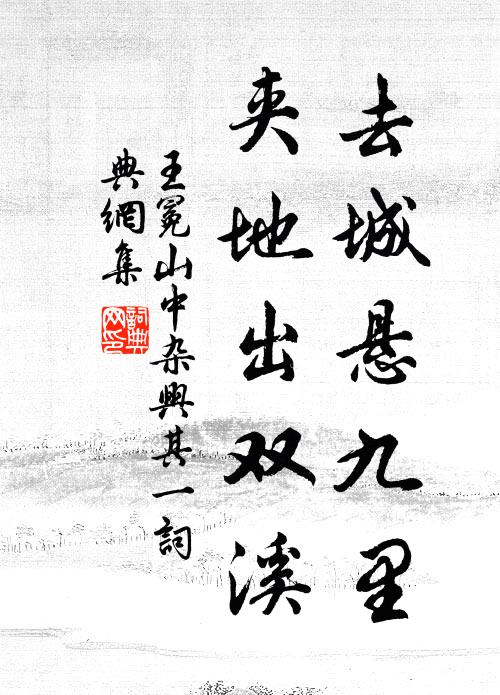 去城悬九里
夹地出双溪
王冕山中杂興其一詞
典網集
詞典
网印